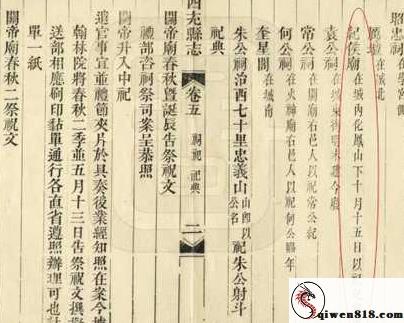 昭忠祠在學宮側
厲壇在城北
紀侯廟在城內化鳳山下十月十五日以祀
袁公祠在城東街明末建今廢
常公祠在關廟右邑人以祀常公紀
何公祠在火神廟右邑人以祀何公臨年
奎星閣在城南
朱公祠治西七十里忠義山山卽以祀朱公射斗公名
祀典
西充縣志 卷五 祠祀 祀典 二
關帝廟春秋暨誕辰告祭祝文
禮部咨祠祭司案呈恭照
關帝升入中祀
遣官事宜並禮節夾片於具奏後業經知照在案今據
翰林院將春秋二季並五月十三日告祭祝文撰
送部相應刷印黏單通行各直省遵照辦理可也計
單一紙
關帝廟春秋二祭祝文
qiwen818.com